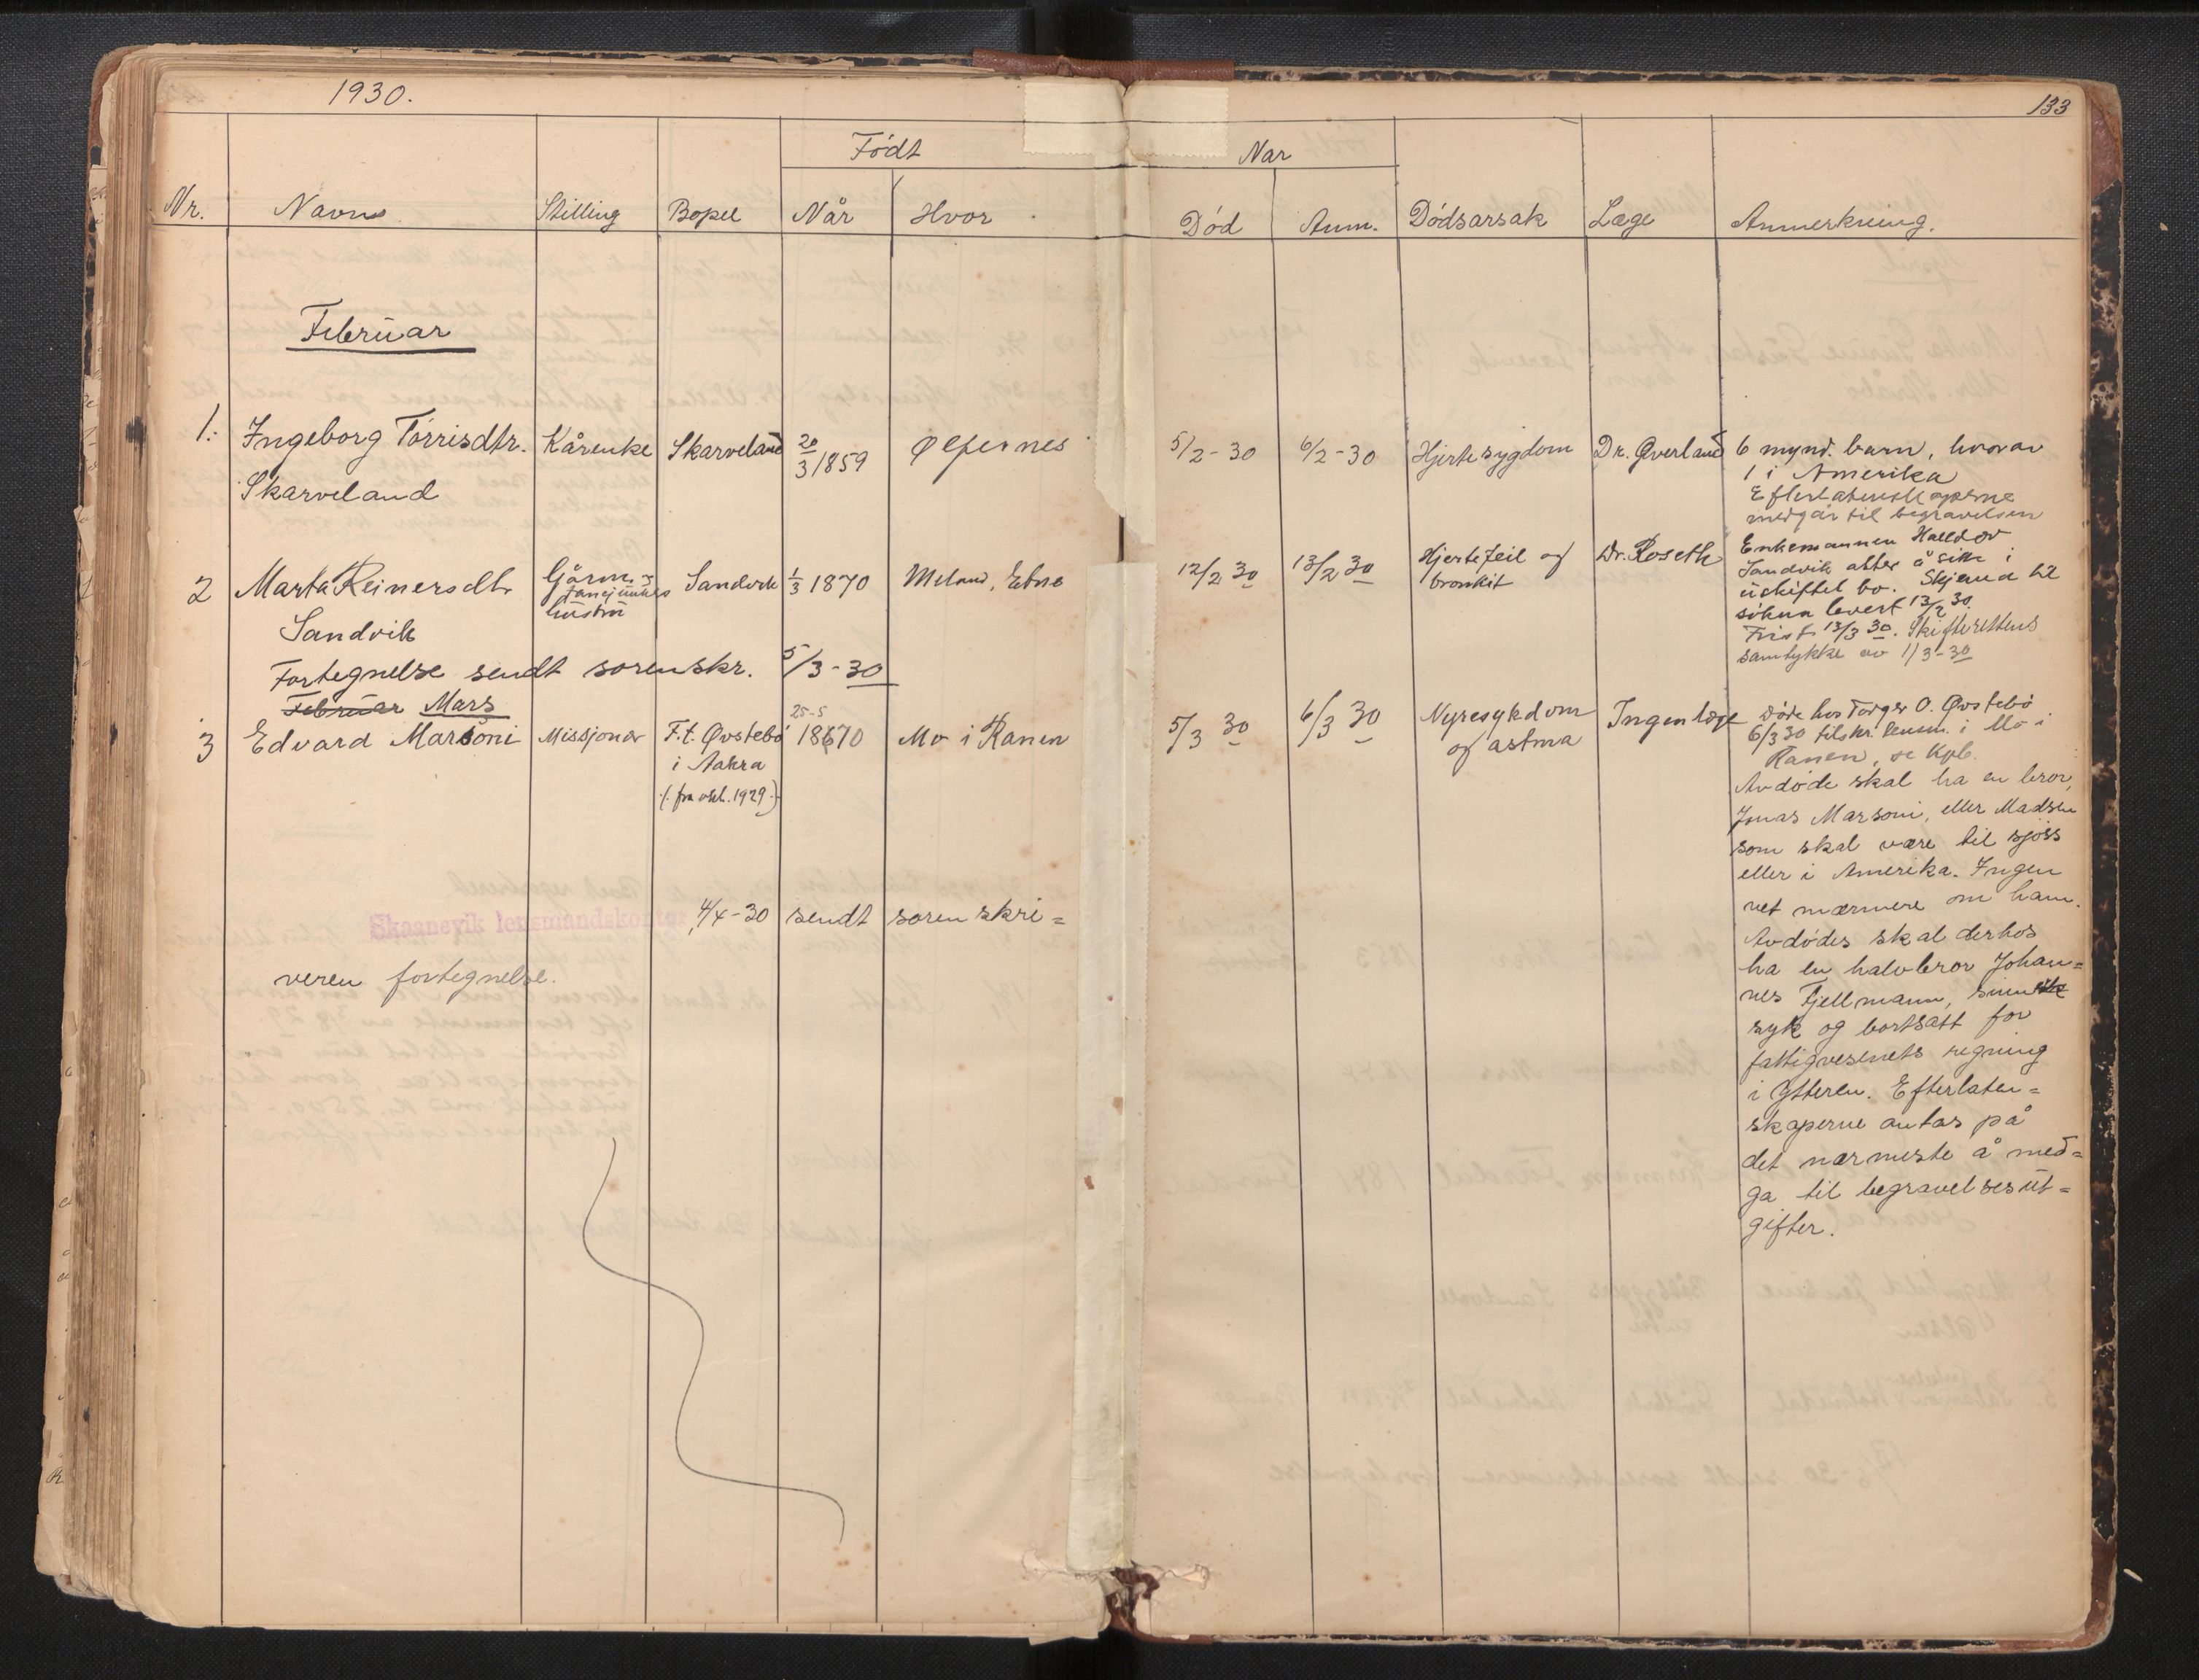 1930.
133
Født
Nar
Nr. Navn Stilling Bopel Når Hvor Død Anm. Dødsarsak Læge Anmerkning.
Februar
1. Ingeborg Tørrisdtr. Kårenke Skarveland 20/3 1859 Ølfernes 5/2-30 6/2-30 Hjertesygdom Dr. Øverland 6 mynd. barn, hvorav
Skarveland
1 i Amerika
Efterlatenskaperne
medgår til begravelsen
2 Marta Reinersdtr Gårm. Sandvik 1/3 1870 Meland, Etne 12/2 30 13/2 30 Hjertefeil og Dr. Roseth Enkemannen Halldor
hustru
bronkit
Sandvik
Sandvik akter å sitte i
uskiftet bo. Skjema til
søkna levert 13/2 30.
Frist 13/3 30. Skifterettens
samtykke av 1/3-30
Fortegnelse sendt sorenskr. 5/3-30
Februar Mars
3 Edvard Marsoni Missjonær F.t. Øvstebø 25-5 18670 Mo i Ranen 5/3 30 6/3 30 Nyresykdom Ingen læge Døde hos Torger O. Øvstebø
i Aakra
og astma
(fra okt. 1929)
6/3 30 tilskr. lensm. i Mo i
Ranen, se Kpb.
Avdøde skal ha en bror,
Jonas Marsoni, eller Madsen
som skal være til sjøss
eller i Amerika. Ingen
vet nærmere om ham.
Avdødes skal derhos
ha en halvbror Johan=
nes Fjellmann, sinn
syk og bortsatt for
fattigvesenets regning
i Ytteren. Efterlaten=
skaperne antas på
det nærmeste å med=
ga til begravelsesut=
gifter.
Skaanevik lensmandskontor 4/4-30 sendt sorenskri=
veren fortegnelse.